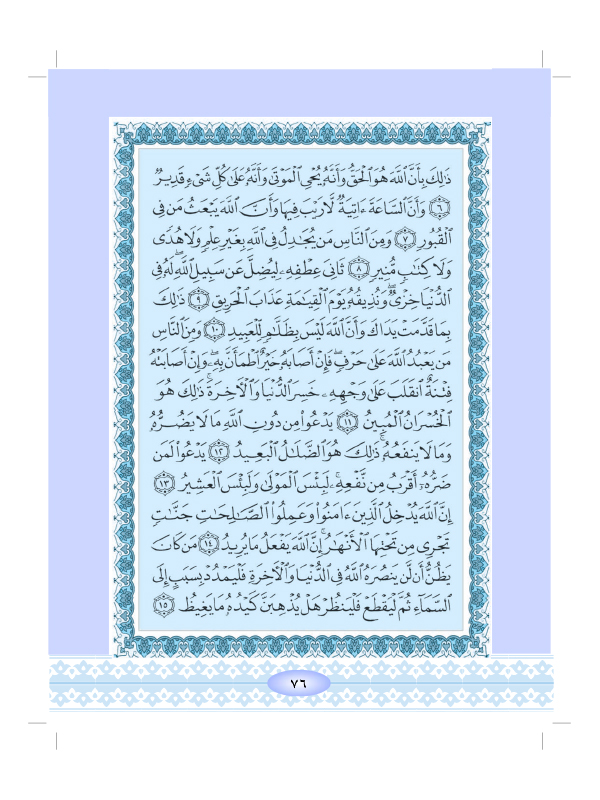 ذَٰلِكَ بِأَنَّ ٱللَّهَ هُوَ ٱلْحَقُّ وَأَنَّهُۥ يُحْىِ ٱلْمَوْتَىٰ وَأَنَّهُۥ عَلَىٰ كُلِّ شَىْءٍ قَدِيرٌ
٦ وَأَنَّ ٱلسَّاعَةَ ءَاتِيَةٌ لَّا رَيْبَ فِيهَا وَأَنَّ ٱللَّهَ يَبْعَثُ مَن فِى
ٱلْقُبُورِ ٧ وَمِنَ ٱلنَّاسِ مَن يُجَٰدِلُ فِى ٱللَّهِ بِغَيْرِ عِلْمٍ وَلَا هُدًى
وَلَا كِتَٰبٍ مُّنِيرٍ ٨ ثَانِىَ عِطْفِهِۦ لِيُضِلَّ عَن سَبِيلِ ٱللَّهِ ۖ لَهُۥ فِى
ٱلدُّنْيَا خِزْىٌ ۖ وَنُذِيقُهُۥ يَوْمَ ٱلْقِيَٰمَةِ عَذَابَ ٱلْحَرِيقِ ٩ ذَٰلِكَ
بِمَا قَدَّمَتْ يَدَاكَ وَأَنَّ ٱللَّهَ لَيْسَ بِظَلَّٰمٍ لِّلْعَبِيدِ ١٠ وَمِنَ ٱلنَّاسِ
مَن يَعْبُدُ ٱللَّهَ عَلَىٰ حَرْفٍ ۖ فَإِنْ أَصَابَهُۥ خَيْرٌ ٱطْمَأَنَّ بِهِۦ ۖ وَإِنْ أَصَابَتْهُ
فِتْنَةٌ ٱنقَلَبَ عَلَىٰ وَجْهِهِۦ خَسِرَ ٱلدُّنْيَا وَٱلْءَاخِرَةَ ۚ ذَٰلِكَ هُوَ
ٱلْخُسْرَانُ ٱلْمُبِينُ ١١ يَدْعُوا۟ مِن دُونِ ٱللَّهِ مَا لَا يَضُرُّهُۥ
وَمَا لَا يَنفَعُهُۥ ۚ ذَٰلِكَ هُوَ ٱلضَّلَٰلُ ٱلْبَعِيدُ ١٢ يَدْعُوا۟ لَمَن
ضَرُّهُۥٓ أَقْرَبُ مِن نَّفْعِهِۦ ۚ لَبِئْسَ ٱلْمَوْلَىٰ وَلَبِئْسَ ٱلْعَشِيرُ ١٣
إِنَّ ٱللَّهَ يُدْخِلُ ٱلَّذِينَ ءَامَنُوا۟ وَعَمِلُوا۟ ٱلصَّٰلِحَٰتِ جَنَّٰتٍ
تَجْرِى مِن تَحْتِهَا ٱلْأَنْهَٰرُ ۚ إِنَّ ٱللَّهَ يَفْعَلُ مَا يُرِيدُ ١٤ مَن كَانَ
يَظُنُّ أَن لَّن يَنصُرَهُ ٱللَّهُ فِى ٱلدُّنْيَا وَٱلْءَاخِرَةِ فَلْيَمْدُدْ بِسَبَبٍ إِلَى
ٱلسَّمَآءِ ثُمَّ لْيَقْطَعْ فَلْيَنظُرْ هَلْ يُذْهِبَنَّ كَيْدُهُۥ مَا يَغِيظُ ١٥
٧٦